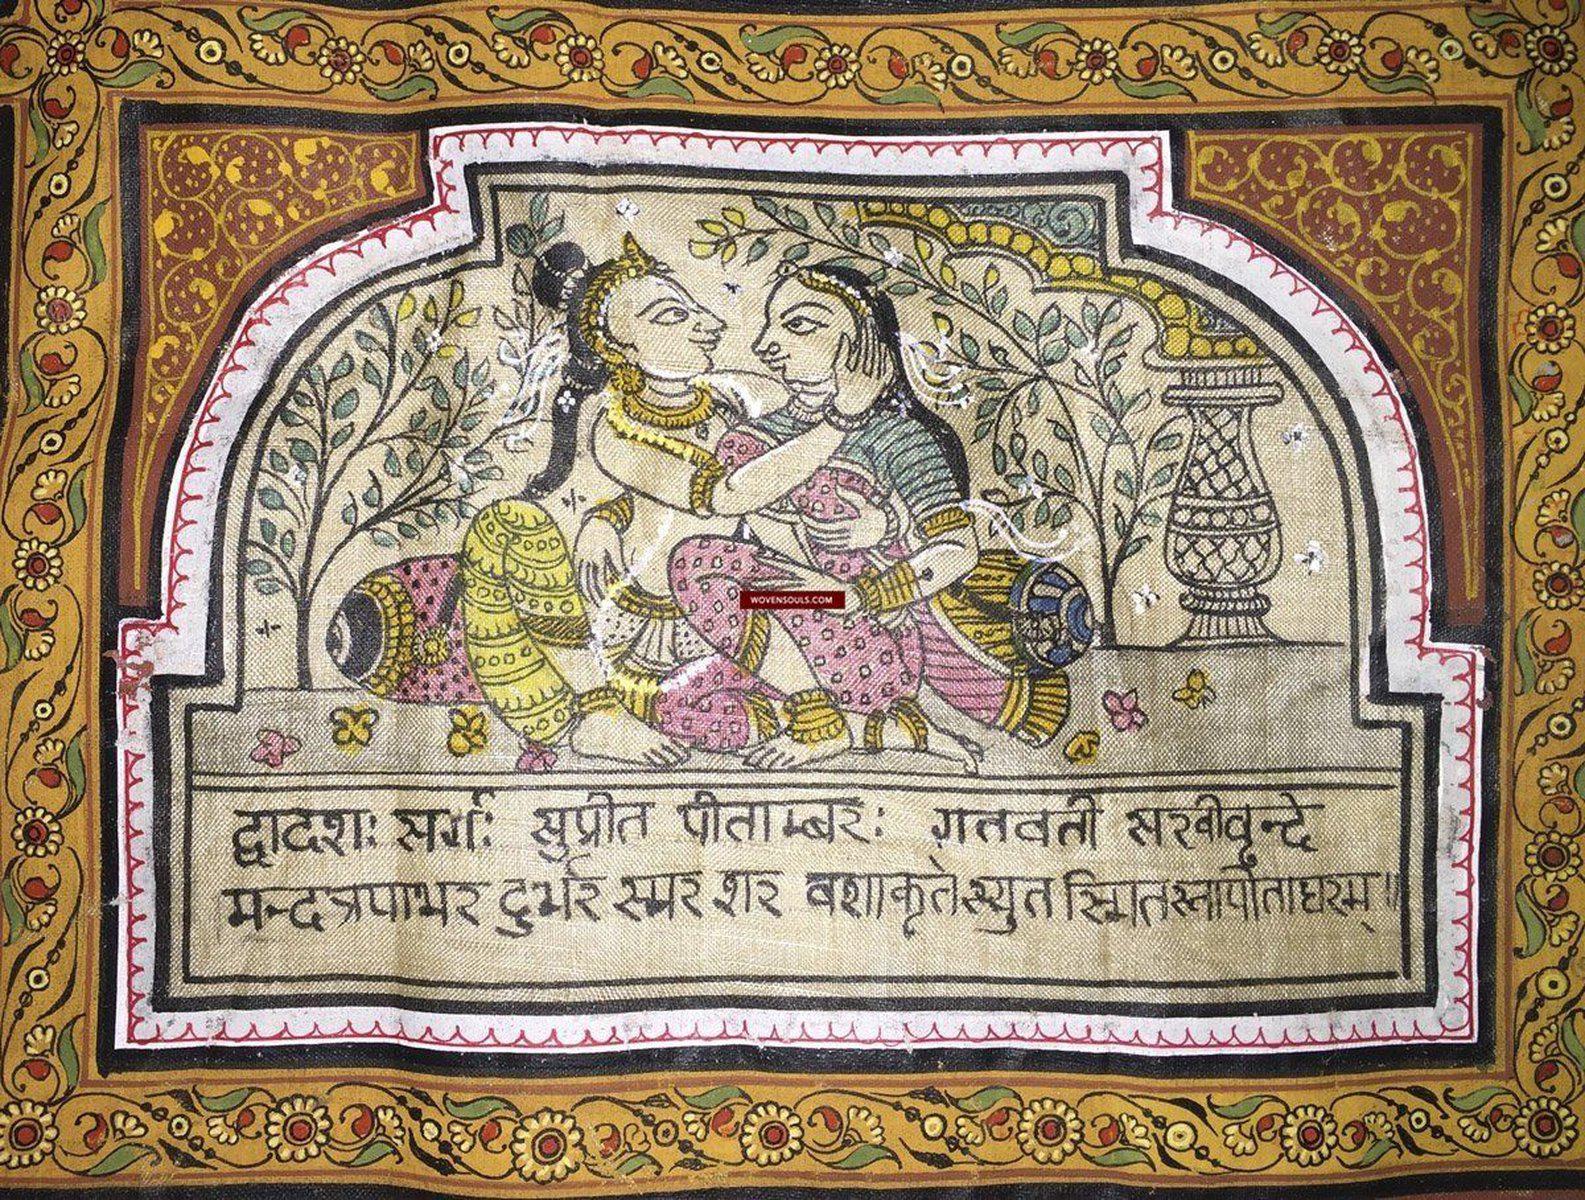 WOVENSOULS.COM
द्वादशः सर्गः सुप्रीत पीताम्बरः गतवती सखीवृन्दे
मन्दत्रपाभर दुर्भर स्मर शर वशाकृतेस्युत स्मितस्नापीताघरम् ॥